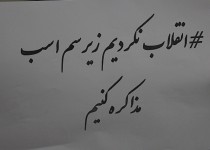 #انقلاب نکردیم زیر سم اسب
مذاکره کنیم